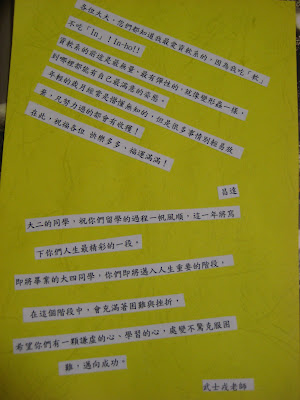 各位大大，您們都知道我最愛首軟系的，因為我吃「軟」
不吃「In」！In-ho!!
首軟系的前途是最無量、最有彈性的，就像變形蟲一樣，
到哪裡都能有自己最滿意的姿態。
年輕的歲月經常是懵懂無知的，但是很多事情別輕易放
棄，凡努力過的都會有收穫！
在此，祝福各位 快樂多多，福運滿滿！
昌達
大二的同學，祝你們留學的過程一帆風順，這一年將寫
下你們人生最精彩的一段。
即將畢業的大四同學，你們即將邁入人生重要的階段，
在這個階段中，會充滿著困難與挫折，
希望你們有一顆謙虛的心、學習的心，處變不驚克服困
難，邁向成功。
武士戎老師